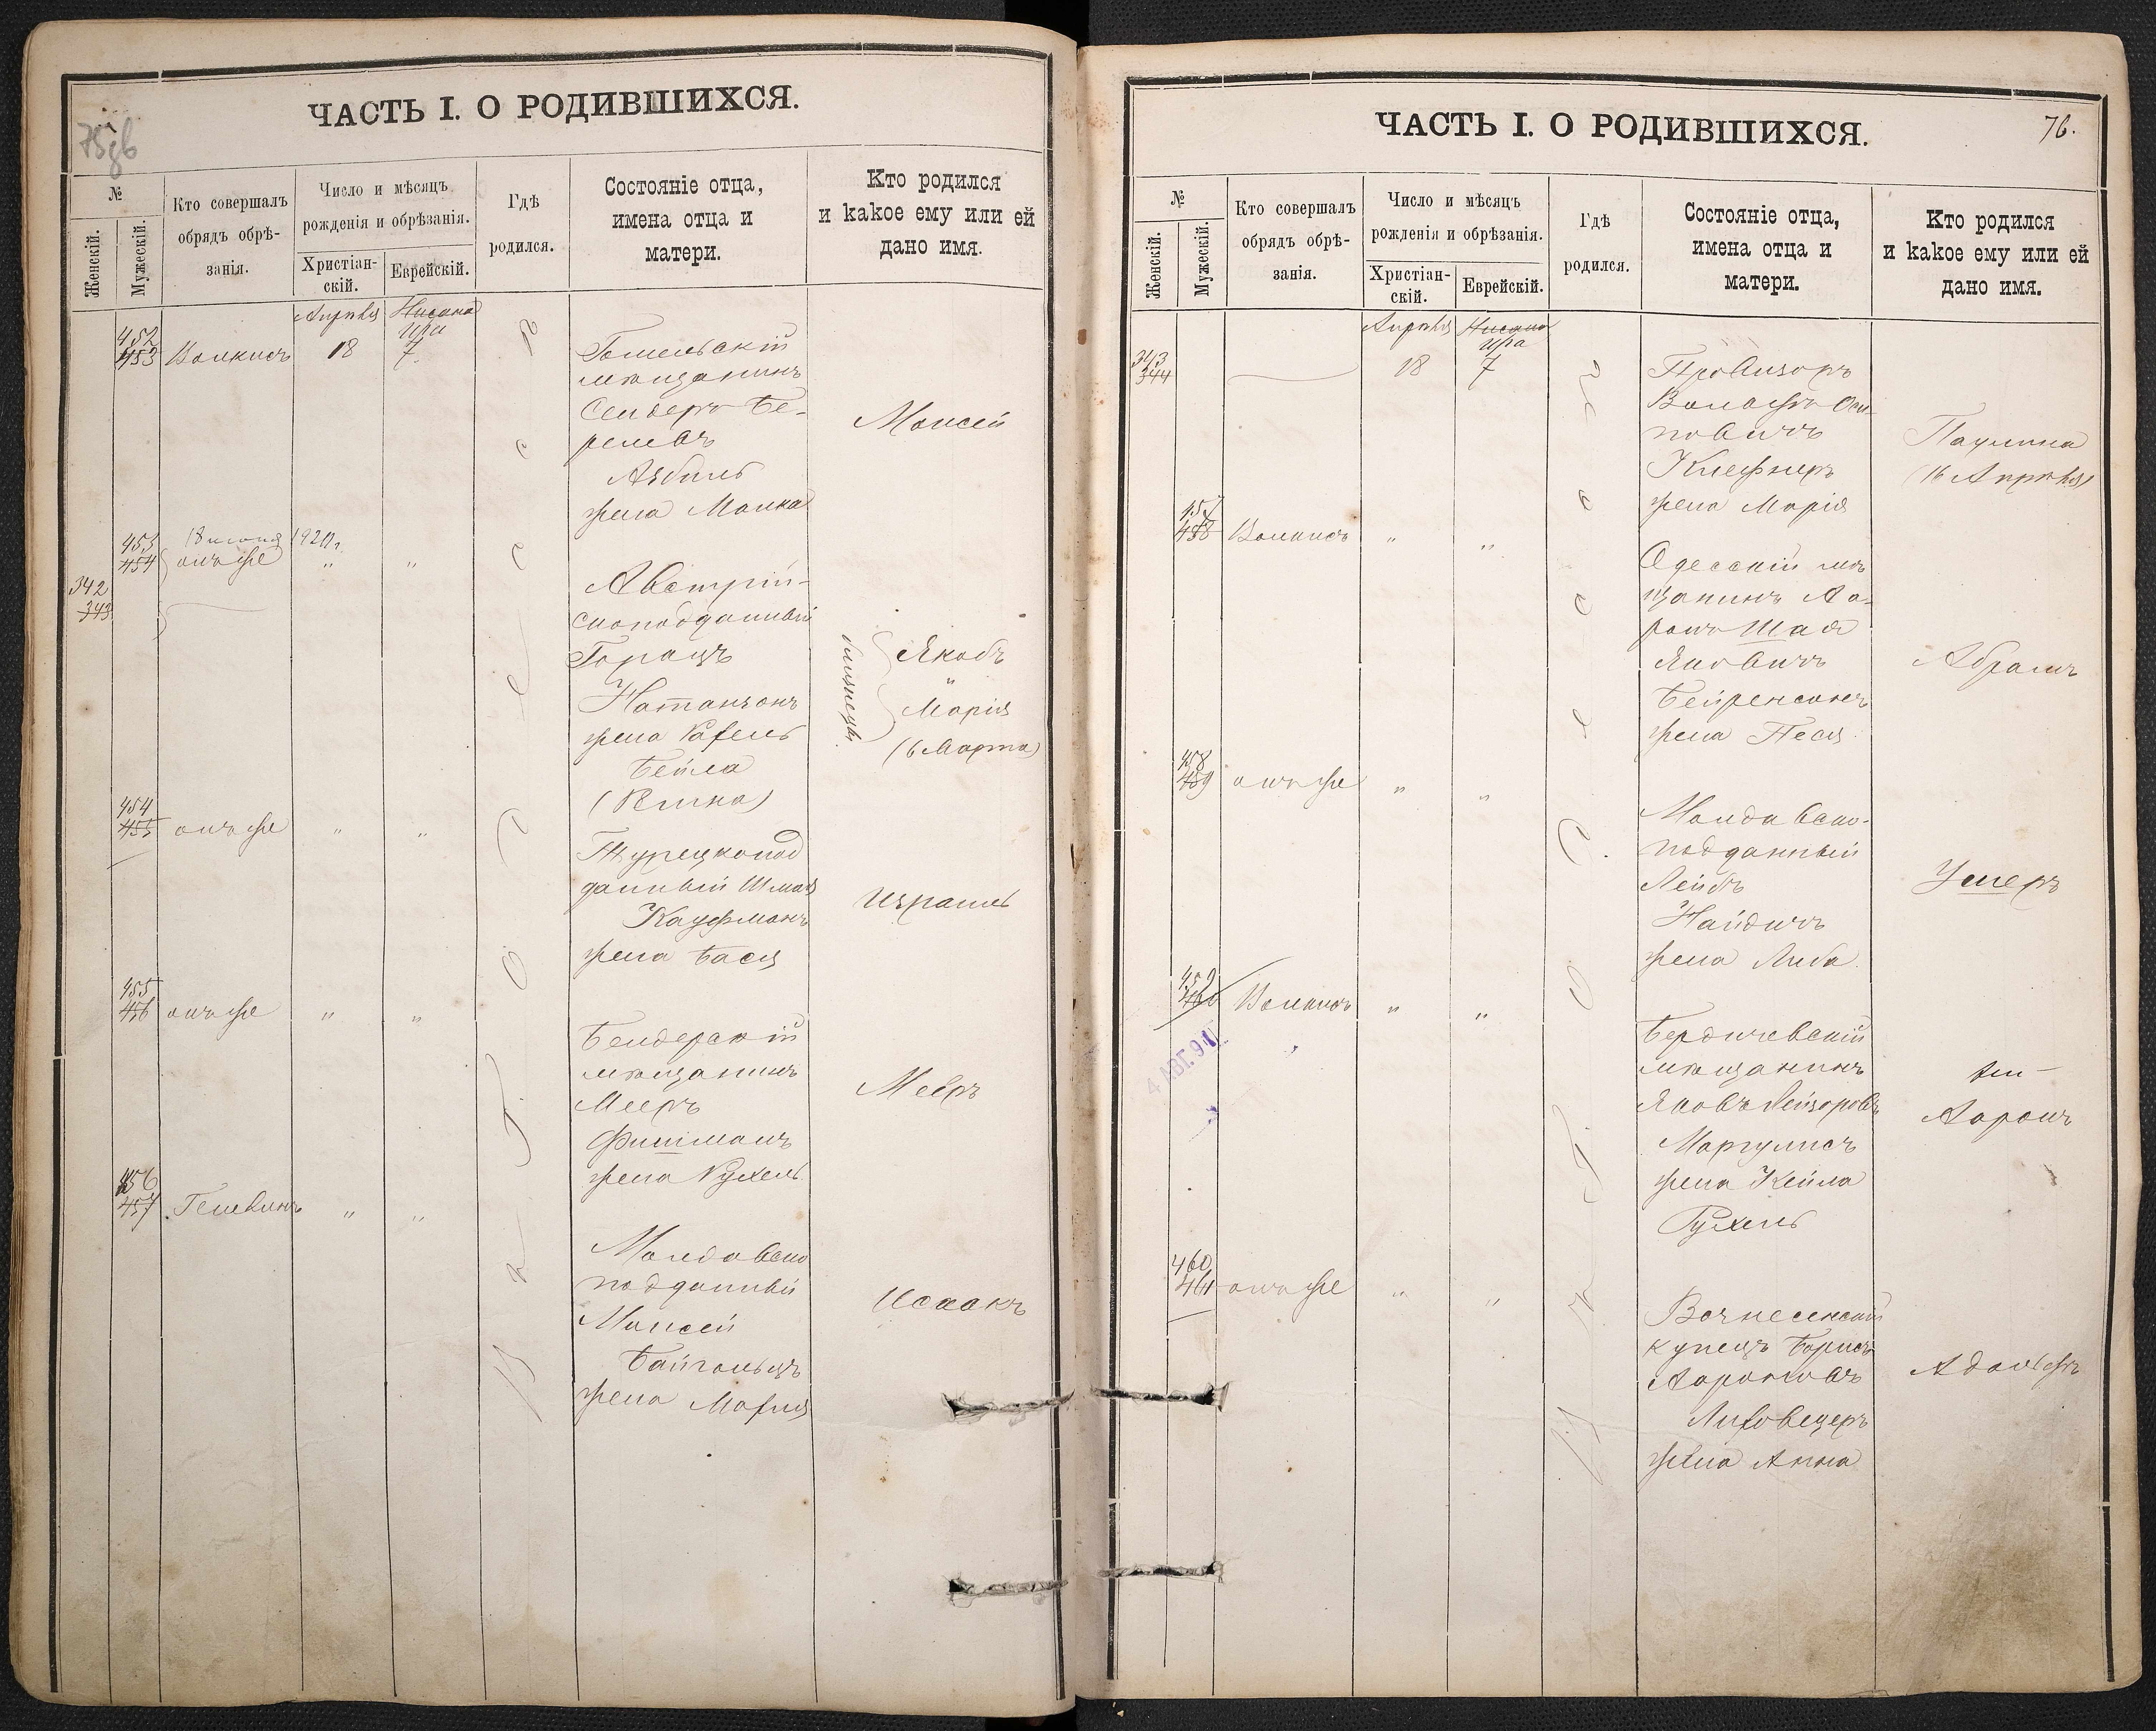 ЧАСТЬ I. О РОДИВШИХСЯ.
№
Женскій.
Мужескій.
Кто совершалъ
обрядъ обрѣ-
занія.
Число и мѣсяцъ
рожденія и обрѣзанія.
Христіан-
скій.
Еврейскій.
Гдѣ
родился.
Состояніе отца,
имена отца и
матери.
Кто родился
и какое ему или ей
дано имя.
Апрѣля Нисана
Ира
452
453 Волкисъ 18 7
Гомельскій
мѣщанинъ
Сендеръ Бе-
релевъ
жена Малка
Моисей
453
454 онъ же " "
18 1920 г.
342
343
Австрій-
скоподданный
Горацъ
Натанзонъ
жена Рахель
Бейла
(Регина)
близнецы
Якобъ
"
Марія
(6 Марта)
454
455 онъ же " "
Турецкопод
данный Шмая
Кауфманъ
жена Бася
Израиль
455
456 онъ же " "
Бендерскій
мѣщанинъ
Мееръ
Фишманъ
жена Рухель
Мееръ
456
457 " "
Молдавско
подданный
Моисей
Байгольцъ
жена Марія
Исаакъ
въ г. Одессѣ
ЧАСТЬ I. О РОДИВШИХСЯ.
76.
№
Женскій.
Мужескій.
Кто совершалъ
обрядъ обрѣ-
занія.
Число и мѣсяцъ
рожденія и обрѣзанія.
Христіан-
скій.
Еврейскій.
Гдѣ
родился.
Состояніе отца,
имена отца и
матери.
Кто родился
и какое ему или ей
дано имя.
Апрѣля Нисана
Ира
343
344 18 7
Провизоръ
Вольфъ Оси-
повичъ
Клефнеръ
жена Марія
Паулина
(16 Апрѣля)
457
458 Волкисъ " "
Одесскій мѣ
щанинъ Аа-
ронъ Шая
Яковичъ
Бейренсонъ
жена Песя
Абрамъ
458
459 онъ же " "
Молдавско-
подданный
Лейбъ
Найдичъ
жена Либа
Ушеръ
459
460 Волкисъ " "
4 АВГ. 91
Бердичевскій
мѣщанинъ
Яковъ Лейзеровъ
Маргулисъ
жена Кейла
Рухель
Бен-
Ааронъ
460
461 онъ же " "
Вознесенскій
купецъ Борисъ
Аароновъ
Лиховецеръ
жена Анна
Адольфъ
въ г. Одессѣ